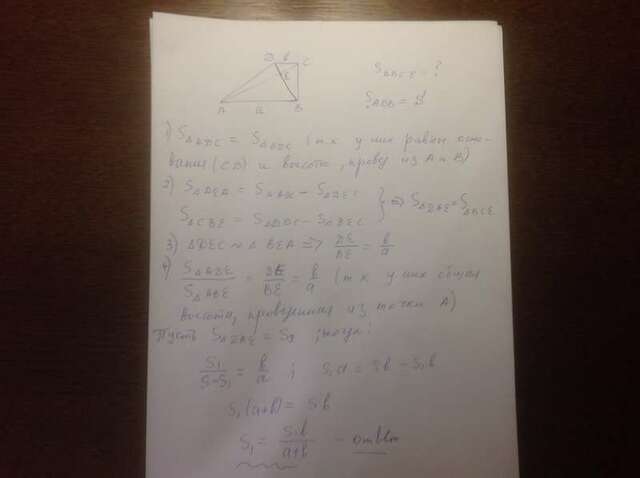 D b C
E
A a B
S△BCE = ?
S△ADB = S
1) S△ADC = S△BDC (т к у них равны осно-
вания (CD) и высоты, провед из A и B)
2) S△DEA = S△ADC − S△DEC
S△CBE = S△BDC − S△DEC
⇒ S△DAE = S△BCE
3) △DEC ~ △BEA ⇒ DE/BE = b/a
4) S△ADE/S△ABE = DE/BE = b/a (т к у них общая
высота, проведенная из точки A)
Пусть S△DAE = S₁ тогда:
S₁/S−S₁ = b/a ; S₁a = Sb − S₁b
S₁(a+b) = Sb
S₁ = Sb/a+b − ответ